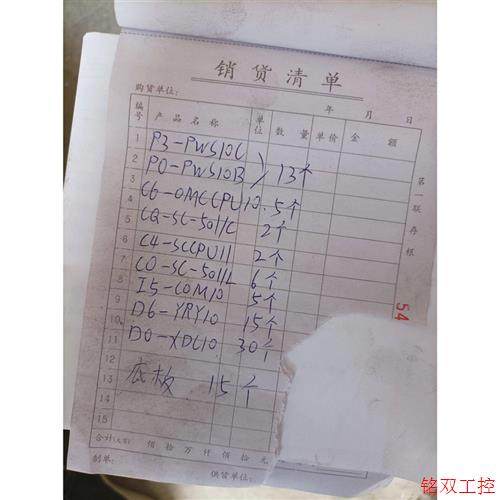 销货清单
购货单位:
年 月 日
编号 产品名称 单位 数量 单价 金额
1 P3-PWS10C
2 P0-PWS10B 13个
3 C6-OMCCPU10 5个
4 CQ-SC-5011C 2个
5 C4-SCCPU11 2个
6 C0-SC-5011L 6个
7 I5-COM10 5个
8 D6-YRY10 15个
9 D0-XDC10 30个
10
11
12 底板 15个
13
14
15
合计(大写) 佰 拾 万 仟 佰 拾 元
制单: 供货单位:
第一联存根
54
铭双工控